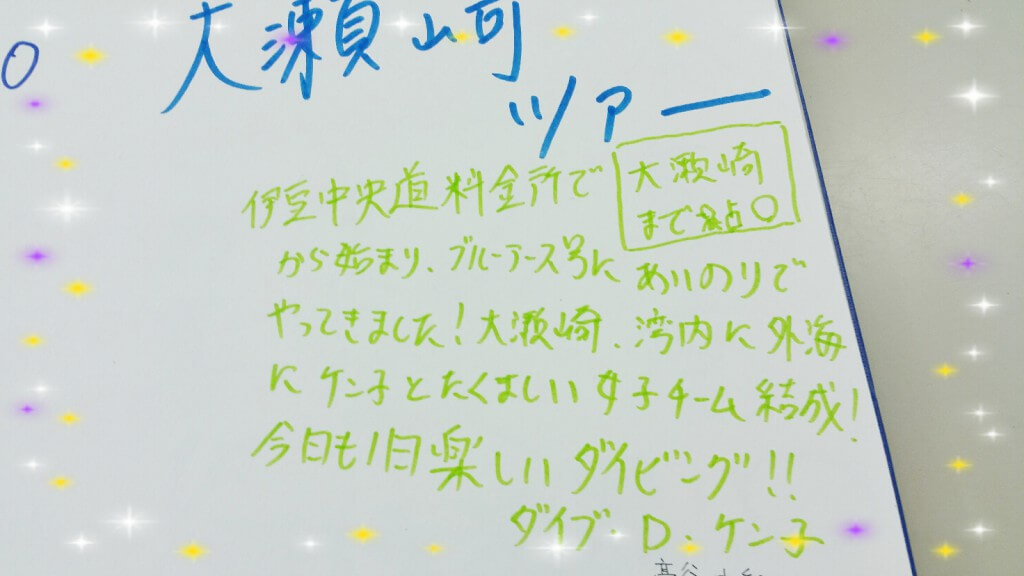 大瀬崎
ツアー
伊豆中央道料金所で
大瀬崎
まで
から始まり、ブルーアース号に あいのりで
やってきました！大瀬崎、湾内に外海
に ケン子とたくましい女子チーム結成！
今日も1日楽しいダイビング!!
ダイブ・D・ケン子